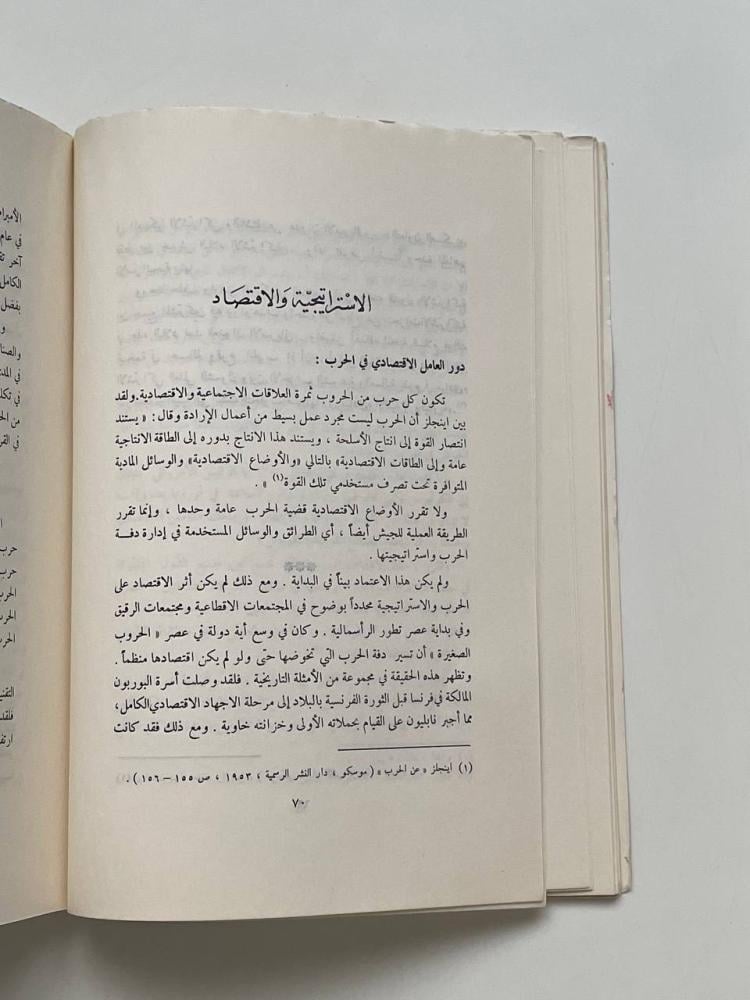 الاسْتراتيجيَّة وَالاقتصَاد
دور العامل الاقتصادي في الحرب :
تكون كل حرب من الحروب ثمرة العلاقات الاجتماعية والاقتصادية.ولقد
بين اينجلز أن الحرب ليست مجرد عمل بسيط من أعمال الإرادة وقال : « يستند
انتصار القوة إلى انتاج الأسلحة ، ويستند هذا الانتاج بدوره إلى الطاقة الانتاجية
عامة وإلى الطاقات الاقتصادية» بالتالي «والأوضاع الاقتصادية» والوسائل المادية
المتوافرة تحت تصرف مستخدمي تلك القوة(١) » .
ولا تقرر الأوضاع الاقتصادية قضية الحرب عامة وحدها ، وإنما تقرر
الطريقة العملية للجيش أيضاً ، أي الطرائق والوسائل المستخدمة في إدارة دفة
الحرب واستراتيجيتها .
ولم يكن هذا الاعتماد بيناً في البداية . ومع ذلك لم يكن أثر الاقتصاد على
الحرب والاستراتيجية محدداً بوضوح في المجتمعات الاقطاعية ومجتمعات الرقيق
وفي بداية عصر تطور الرأسمالية . وكان في وسع أية دولة في عصر « الحروب
الصغيرة » أن تسير دفة الحرب التي تخوضها حتى ولو لم يكن اقتصادها منظماً .
وتظهر هذه الحقيقة في مجموعة من الأمثلة التاريخية . فلقد وصلت أسرة البوربون
المالكة في فرنسا قبل الثورة الفرنسية بالبلاد إلى مرحلة الاجهاد الاقتصادي الكامل،
مما أجبر نابليون على القيام بحملاته الأولى وخزانته خاوية . ومع ذلك فقد كانت
(١) اينجلز « عن الحرب » ( موسكو ، دار النشر الرسمية ، ١٩٥٣ ، ص ١٥٥ – ١٥٦ ) .
٧٠